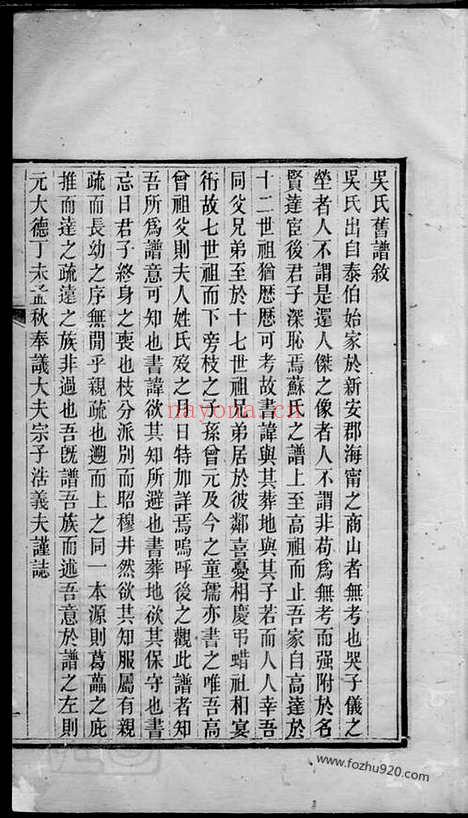 吳氏舊譜敘
吳氏出自泰伯始家於新安郡海甯之商山者無考也哭子儀之
塋者人不謂是還人傑之像者人不謂非苟爲無考而强附於名
賢達宦後君子深恥焉蘇氏之譜上至高祖而止吾家自高達於
十二世祖猶歷歷可考故書諱與其葬地與其子若而人人幸吾
同父兄弟至於十七世祖兄弟居於彼鄰喜憂相慶弔蜡祖相宴
術故七世祖而下旁枝之子孫曾元及今之童孺亦書之唯吾高
曾祖父則夫人姓氏歿之月日特加詳焉嗚呼後之觀此譜者知
吾所爲譜意可知也書諱欲其知所避也書葬地欲其保守也書
忌日君子終身之喪也枝分派別而昭穆井然欲其知服屬有親
疏而長幼之序無間乎親疏也遡而上之同一本源則葛藟之庇
推而達之疏遠之族非過也吾旣譜吾族而述吾意於譜之左則
元大德丁未孟秋奉議大夫宗子浩義夫謹誌
nayona.cn
www.fozhu920.com